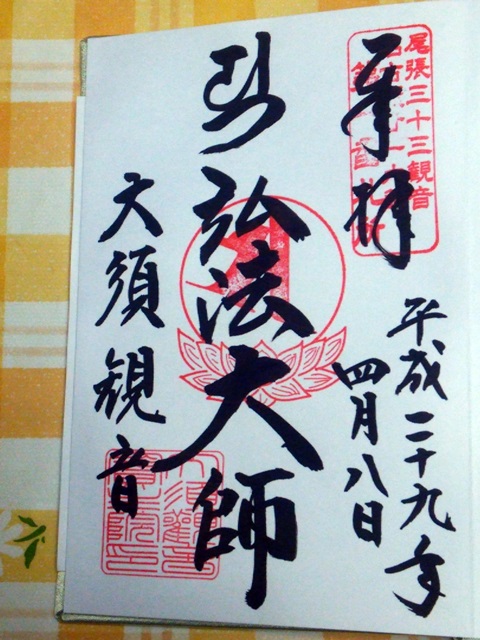 奉拝
尾張三十三観音
平成二十九年
四月八日
弘法大師
大須観音